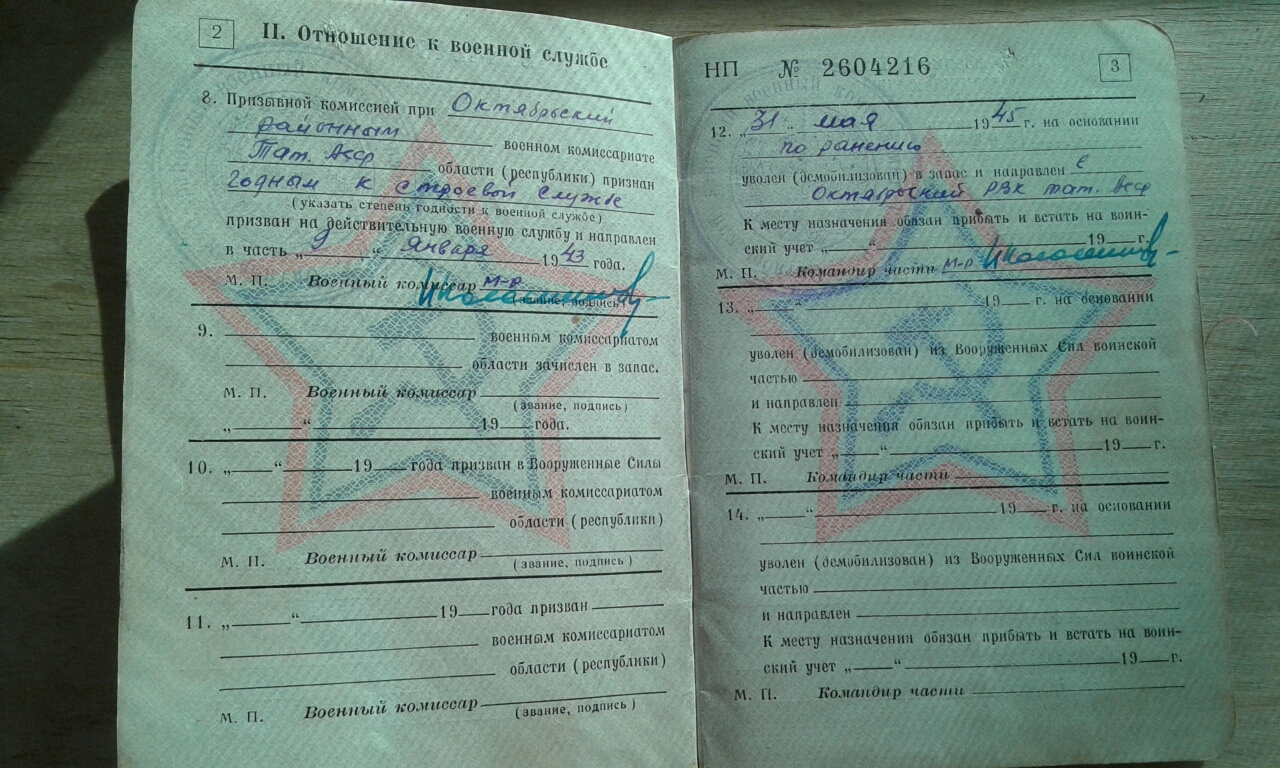 2
II. Отношение к военной службе
8. Призывной комиссией при Октябрьский
районным военном комиссариате
Тат. Асср области (республики) признан
годным к строевой службе
(указать степень годности к военной службе)
призван на действительную военную службу и направлен
в часть „9“ января 1943 года.
М. П. Военный комиссар м-р
(звание, подпись)
9. военным комиссариатом
области зачислен в запас.
М. П. Военный комиссар
(звание, подпись)
„ “ 19 года.
10. „ “ 19 года призван в Вооруженные Силы
военным комиссариатом
области (республики)
М. П. Военный комиссар
(звание, подпись)
11. „ “ 19 года призван
военным комиссариатом
области (республики)
М. П. Военный комиссар
(звание, подпись)
НП № 2604216
3
12. „31“ мая 1945 г. на основании
по ранению
уволен (демобилизован) в запас и направлен в
Октябрьский РВК тат. Асср
К месту назначения обязан прибыть и встать на воин-
ский учет „ “ 19 г.
М. П. Командир части м-р
13. „ “ 19 г. на основании
уволен (демобилизован) из Вооруженных Сил воинской
частью
и направлен
К месту назначения обязан прибыть и встать на воин-
ский учет „ “ 19 г.
М. П. Командир части
14. „ “ 19 г. на основании
уволен (демобилизован) из Вооруженных Сил воинской
частью
и направлен
К месту назначения обязан прибыть и встать на воин-
ский учет „ “ 19 г.
М. П. Командир части